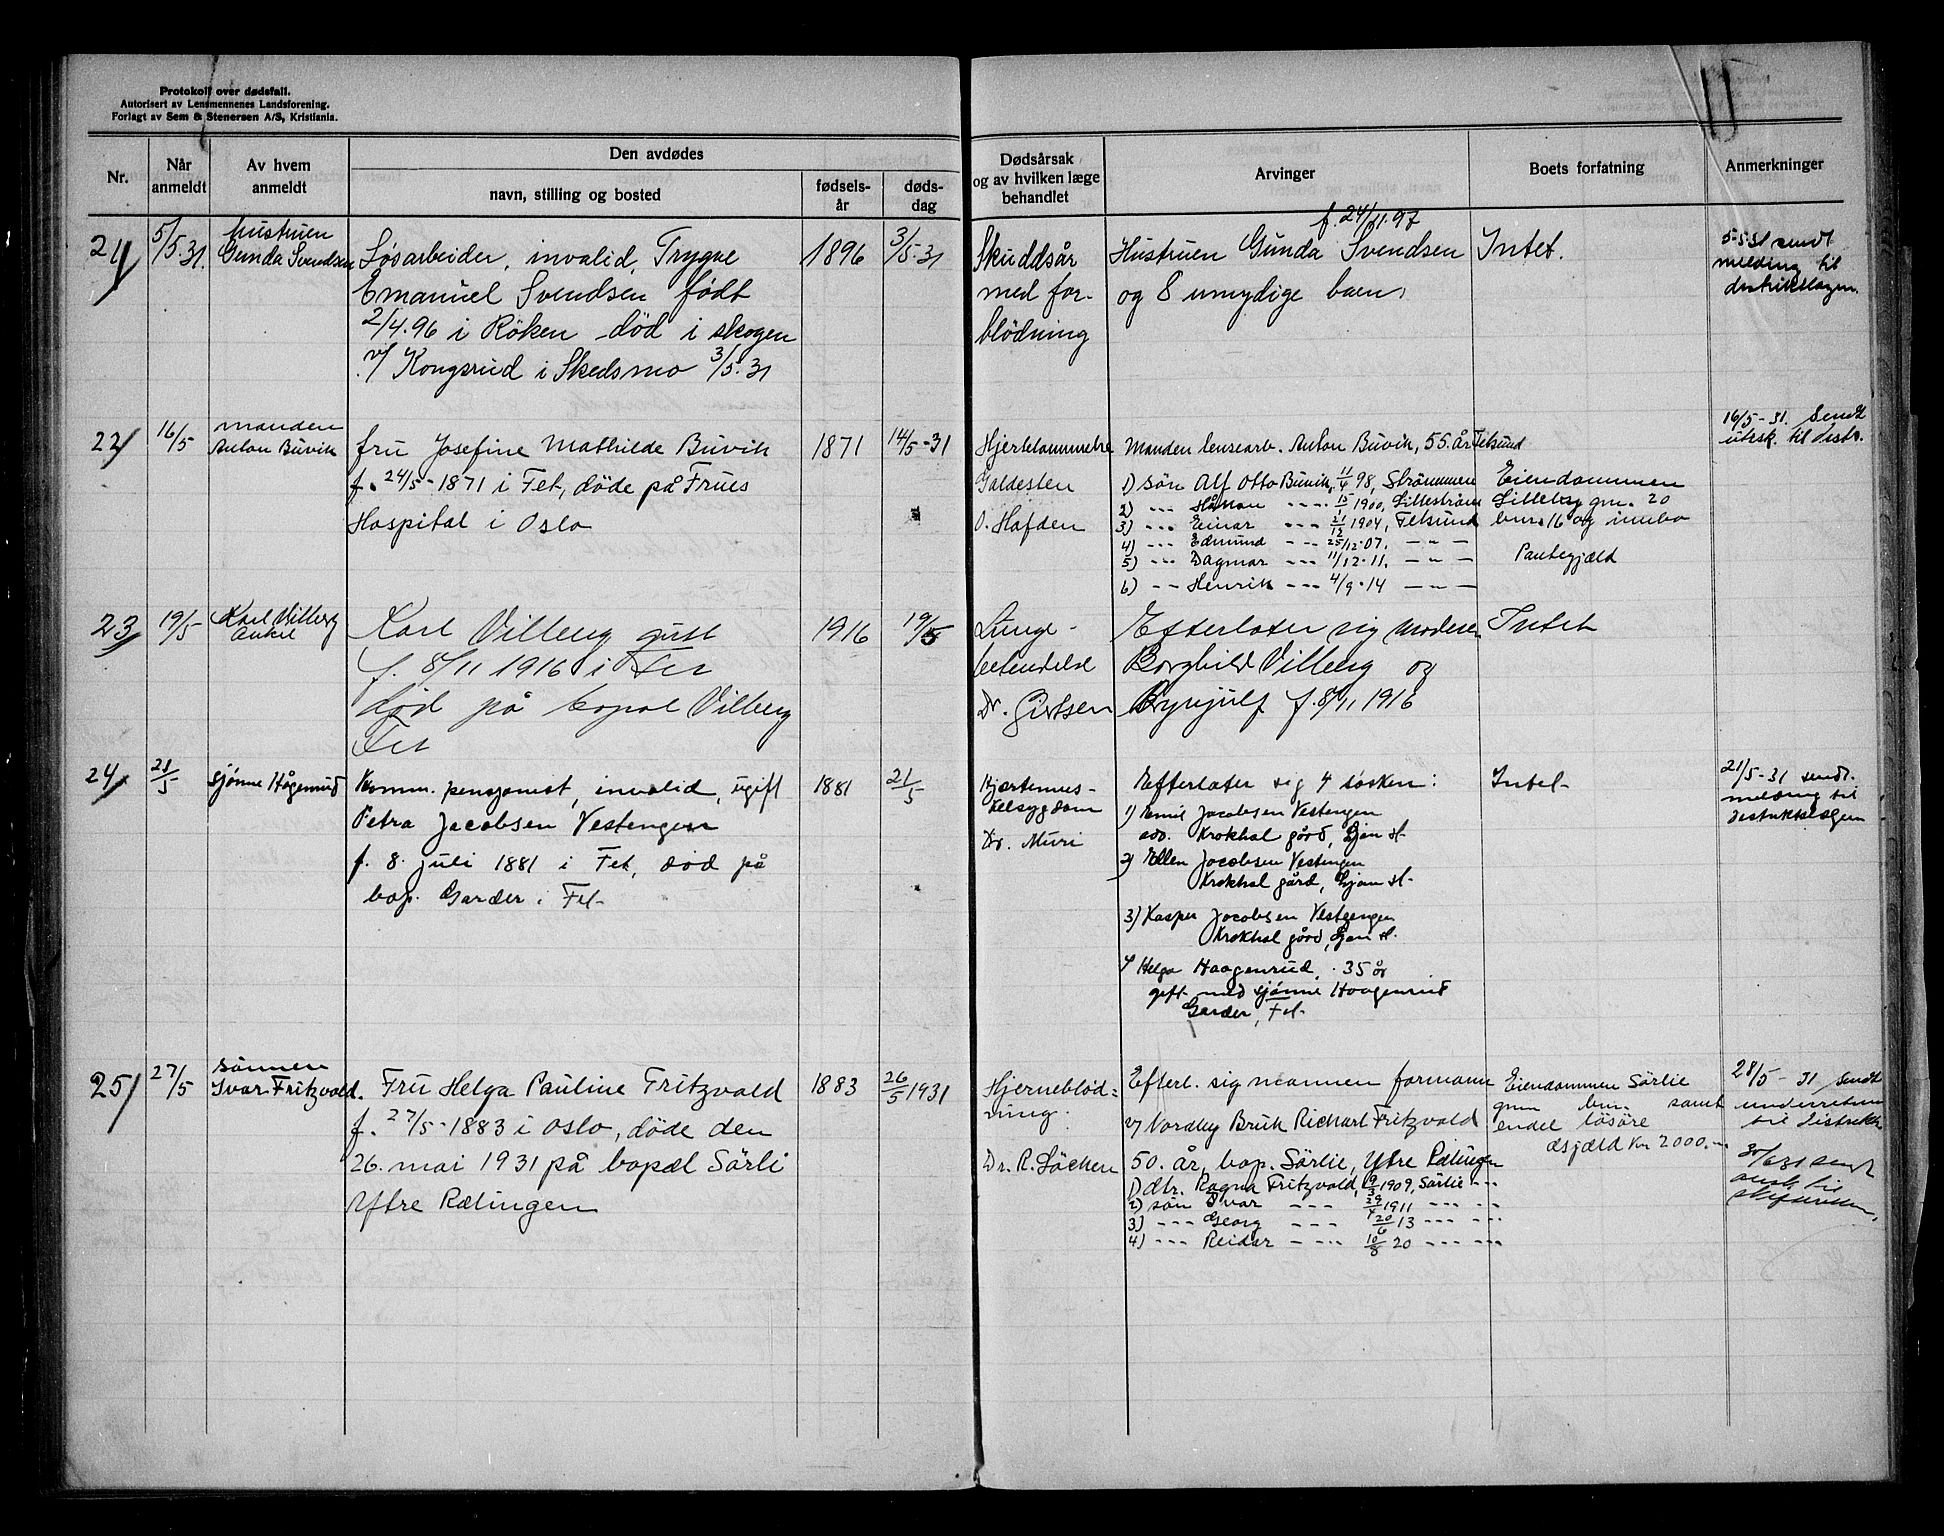 Protokoll over dødsfall.
Autorisert av Lensmennenes Landsforening.
Forlagt av Sem & Stenersen A/S, Kristiania.
Nr.
Når anmeldt
Av hvem anmeldt
Den avdødes
navn, stilling og bosted
fødsels-år
døds-dag
Dødsårsak og av hvilken læge behandlet
Arvinger
Boets forfatning
Anmerkninger
21/
5/5.31.
hustruen
Gunda Svendsen
Løsarbeider, invalid, Trygve
Emanuel Svendsen født
2/4.96 i Röken død i skogen
v/ Kongsrud i Skedsmo 3/5.31
1896
3/5.31
Skuddsår
med for-
blödning
f. 24/11.97
Hustruen Gunda Svendsen
og 8 umydige baen
Intet.
5-5-31 sendt
melding til
distriktslægen.
22/
16/5
manden
Anton Buvik
fru Josefine Mathilde Buvik
f. 24/5-1871 i Fet, döde på Frues
Hospital i Oslo
1871
14/5-31
Hjertelammelse
Galdesten
O. Hafden
Manden lensearb. Anton Buvik, 55 år Fetsund
1) sön Alf Otto Buvik, 11/4 98, Strömmen
2) --- Håkon --- 15/ 1900, Lilleström
3) --- Einar --- 21/12 1904, Fetsund
4) --- Edmund --- 25/12.07. — " —
5) --- Dagmar --- 11/12.11. — " —
6) -- Henrik --- 4/9.14 — " —
Eiendommen
Lilleby gnr. 20
bnr. 16 og innbo
Pantegjæld
16/5-31. Sendt
utsk. til distr.
23/
19/5
Karl Vilberg
Karl Vilberg gutt
f. 8/11 1916 i Fet
død på bopæl Vilberg
Fet
1916
19/5
Lunge-
betendelse
Dr. Giertsen
Efterlater sig moderen
Borghild Vilberg og
Brynjulf f. 8/11 1916
Intet
24/
21/5
Sjønne Hågenrud
Komm. pensjonist, invalid, ugift
Petra Jacobsen Vestengen
f. 8. juli 1881 i Fet, død på
bop. Garder i Fet
1881
21/5
Hjertemus-
kelsygdom
Dr. Muri
Efterlater seg 4 søsken:
1) Emil Jacobsen Vestengen
adr. Krokhol gård, Ljan st.
2) Ellen Jacobsen Vestengen
Krokhol gård, Ljan st.
3) Kasper Jacobsen Vestgengen
Krokhol gård, Ljan st.
4 Helga Haagenrud, 35 år
gift med Sjønne Haagenrud
Garder, Fet
Intet
21/5-31 sendt.
melding til
distriktslægen
25/
27/5
sönnen
Ivar Fritzvold.
Fru Helga Pauline Fritzvold
f. 27/5-1883 i Oslo, döde den
26. mai 1931 på bopæl Sörli
Ytre Rælingen
1883
26/5 1931
Hjerneblöd=
ning.
Dr. R. Löchen
Efterl. sig mannen formann
v/ Nordby Bruk Richart Fritzvold
50. år, bop. Sørlie, Ytre Rælingen
1) dtr. Ragna Fritzvold, 19/3 1909, Sørlie ---
2) sön Ivar --- 29/4 1911 --- --
3) --- Georg --- 20/6 13 --- ---
4) --- Reidar --- 10/8 20 --- ---
Eiendommen Sörlie
gnr bnr. samt
endel lösöre
Gjæld Kr 2000.—
28/5-31 sendt
underretn
til distrikts
30/6 31 sendt
til
skifteretten.